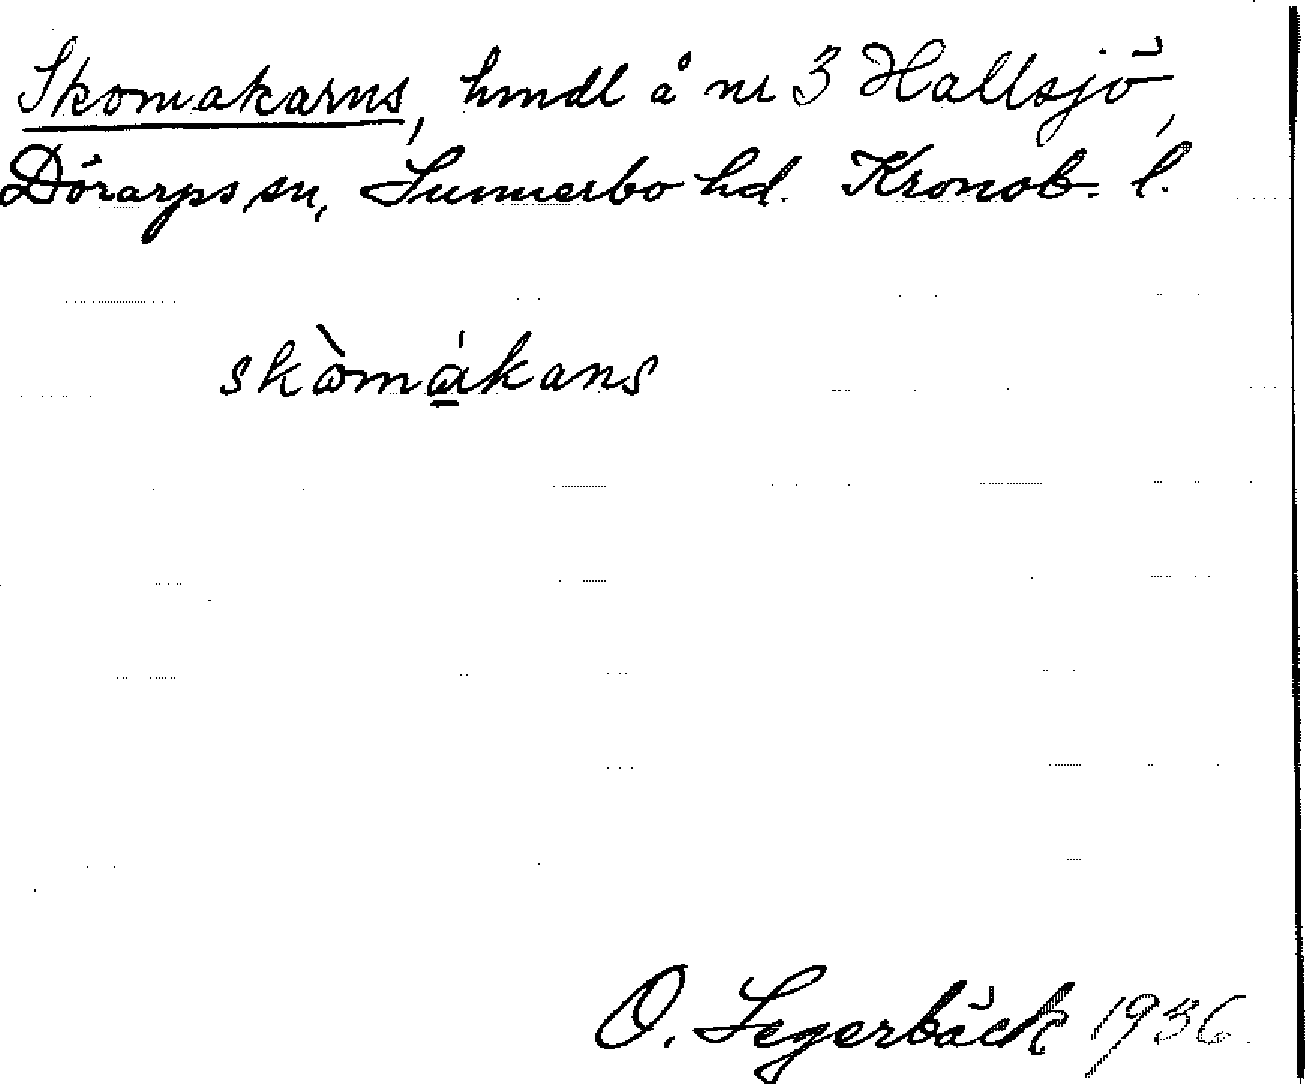 Skomakarns, hmdl å nr 3 Hallsjö,
Dörarps sn, Sunnerbo hd. Kronob. l.
skòmákans
O. Segerbäck 1936